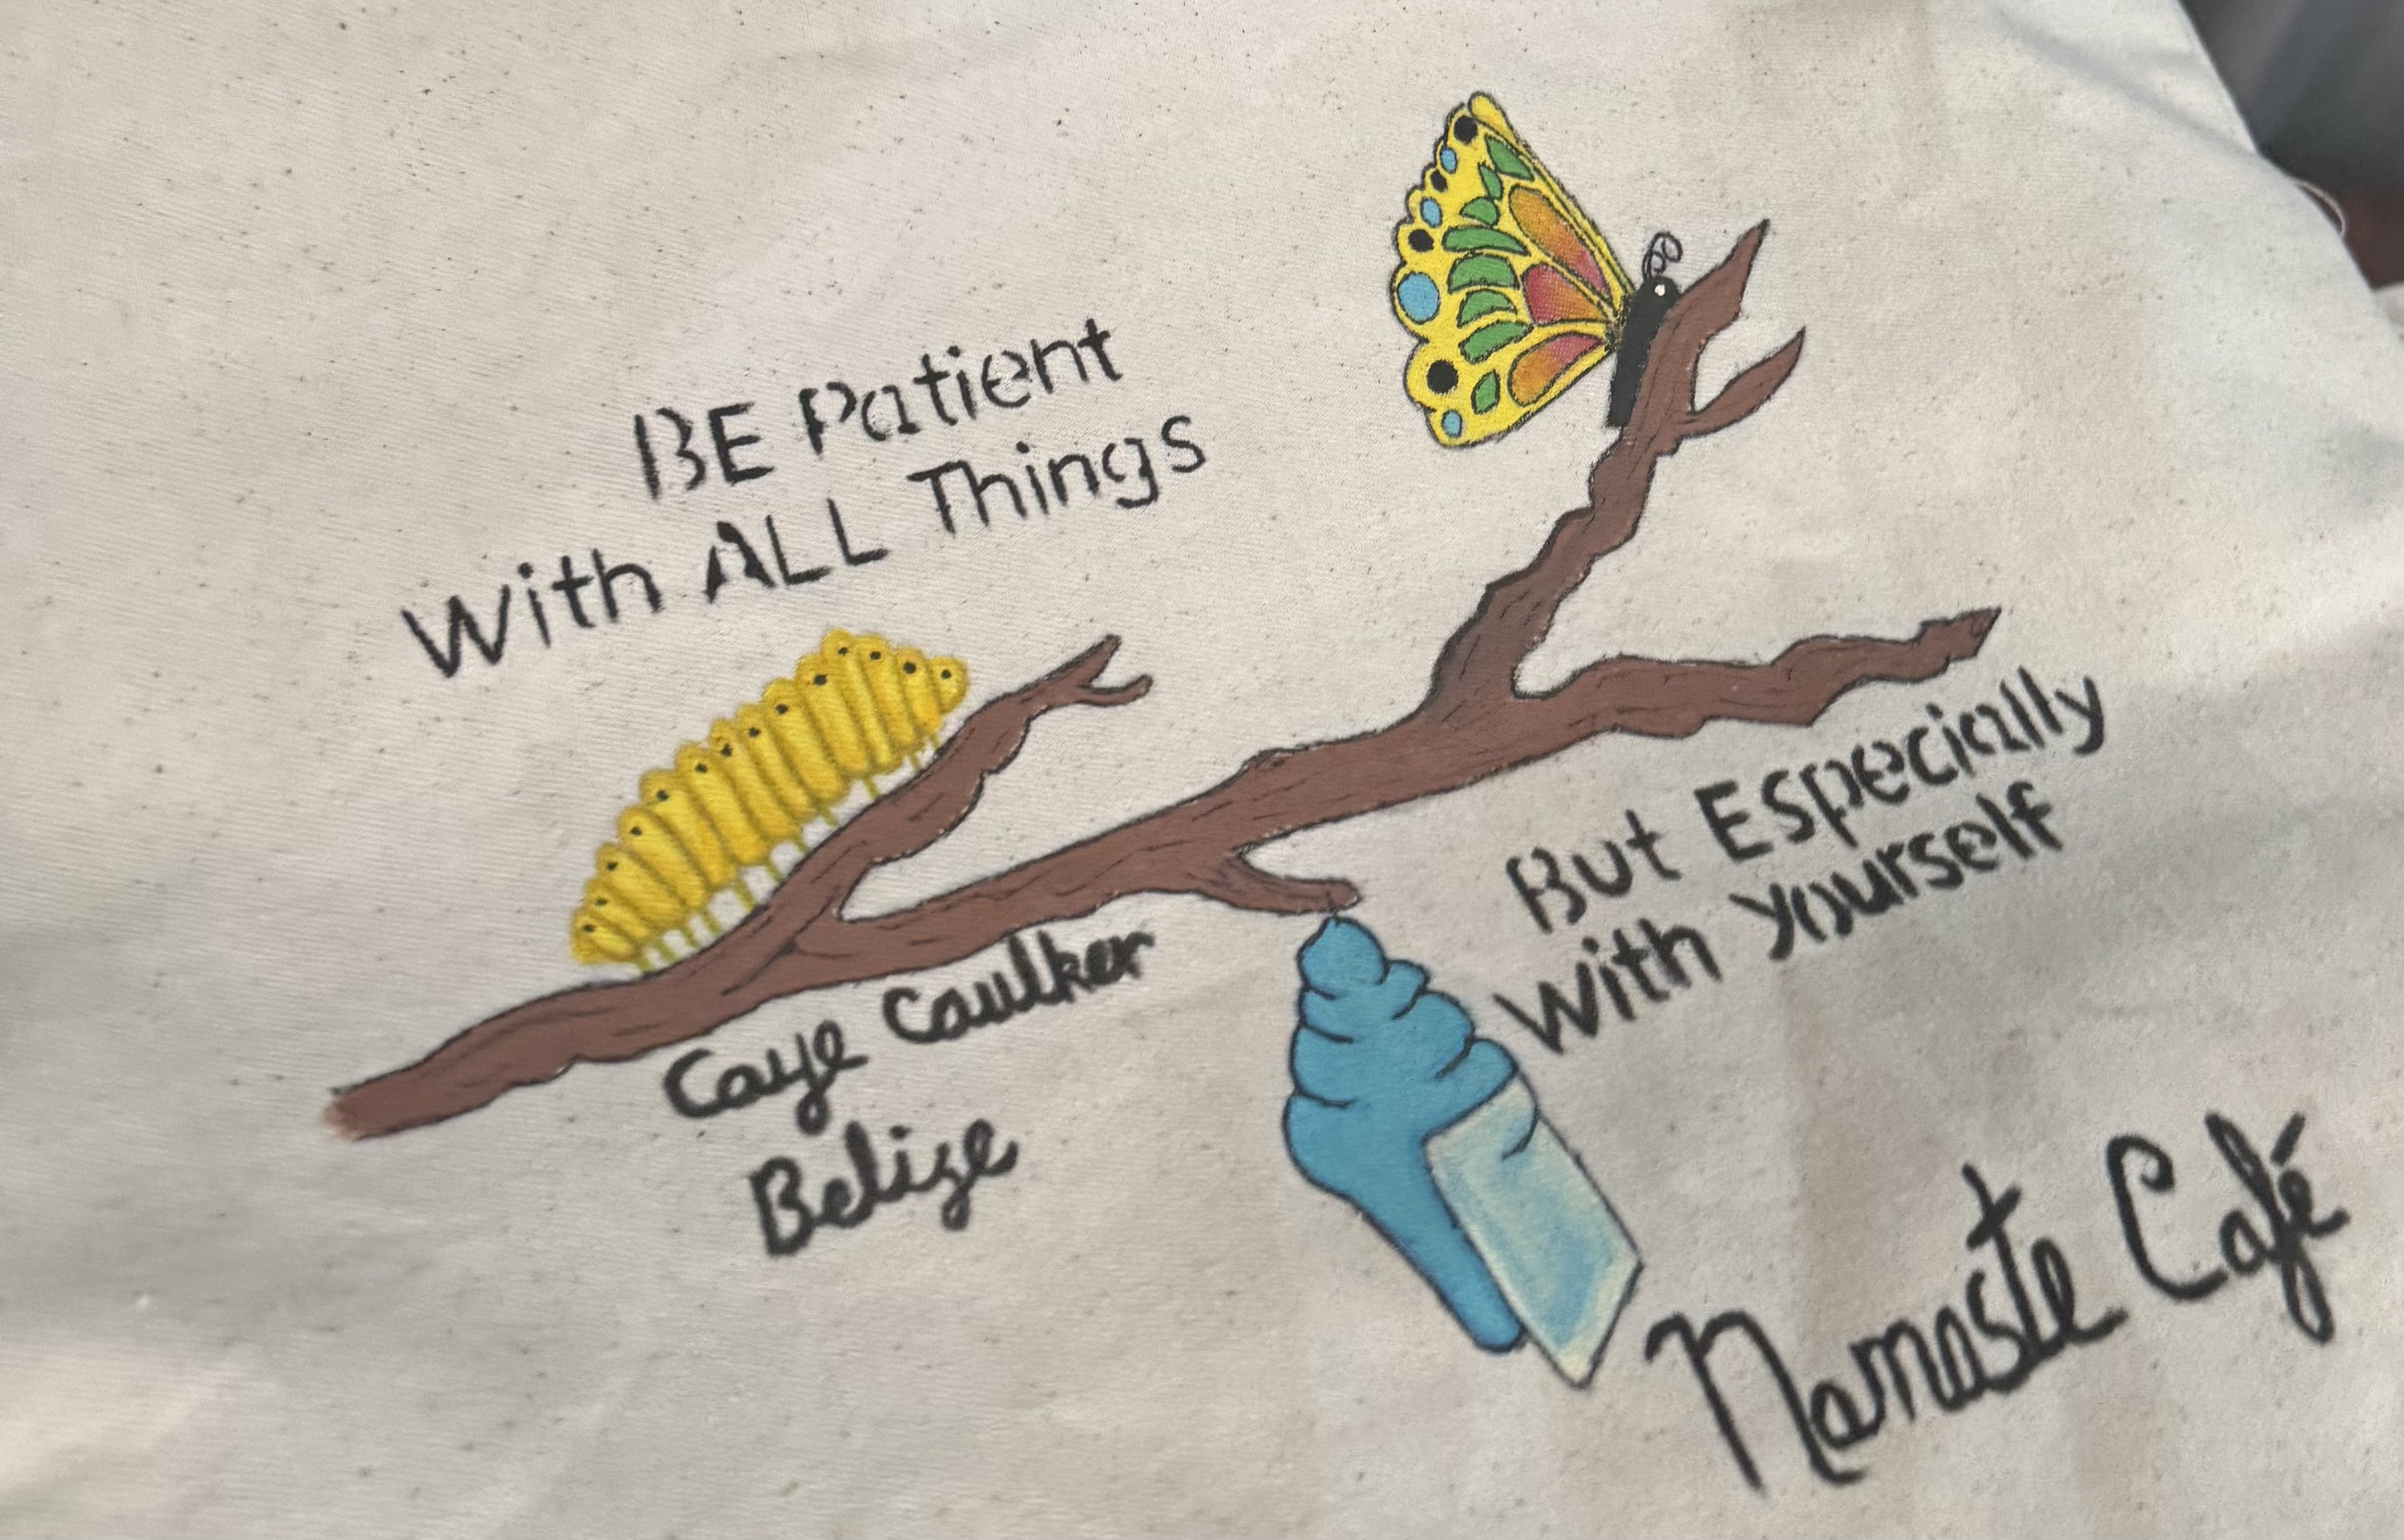 BE Patient
With ALL Things
But Especially
With Yourself
Caye Caulker
Belize
Namaste Café